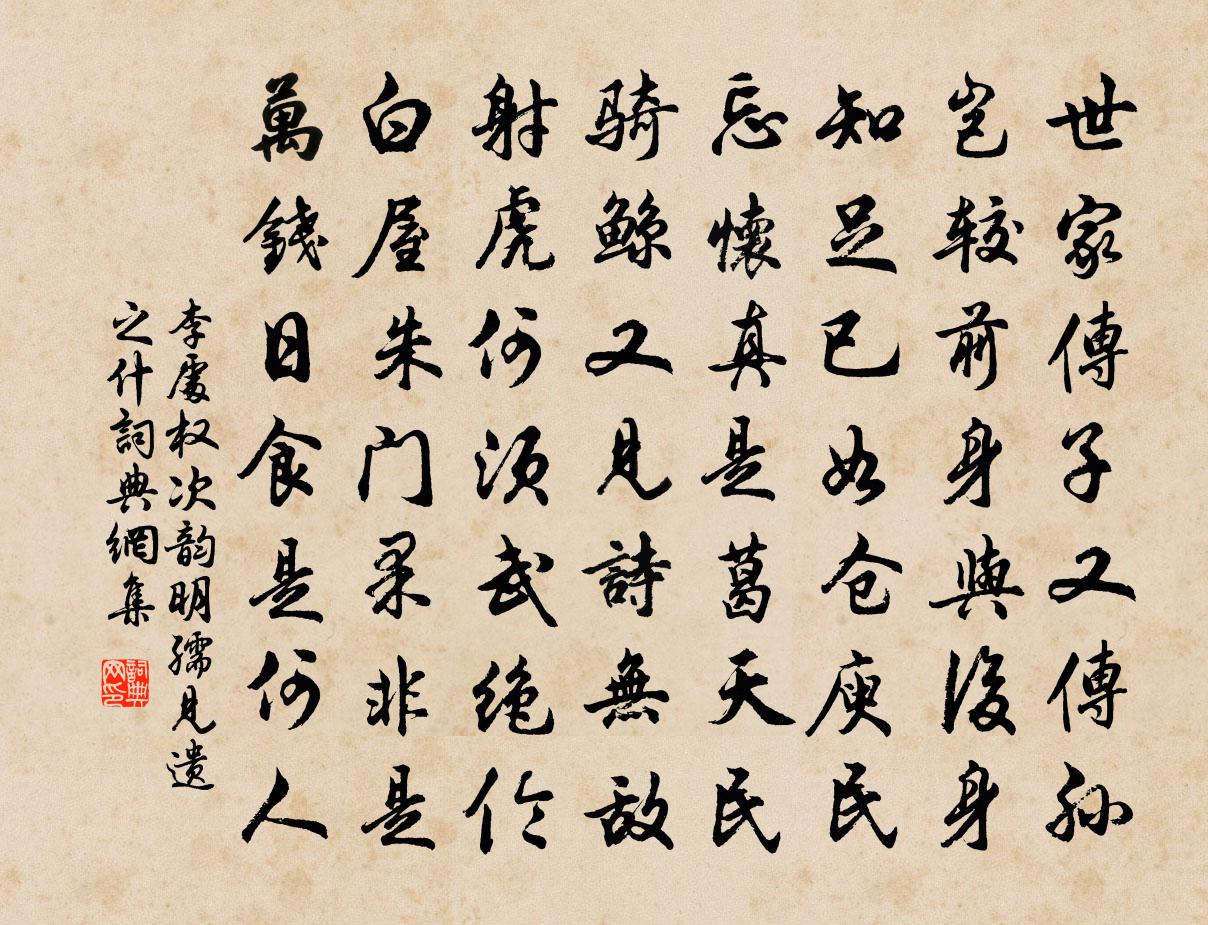 世家傳子又傳孙
岂较前身與後身
知足已如仓庾民
忘懷真是葛天民
骑鲸又见詩無敌
射虎何须武绝伦
白屋朱门果非是
萬錢日食是何人
李處权次韵明孺见遗
之什詞典網集
詞典网印